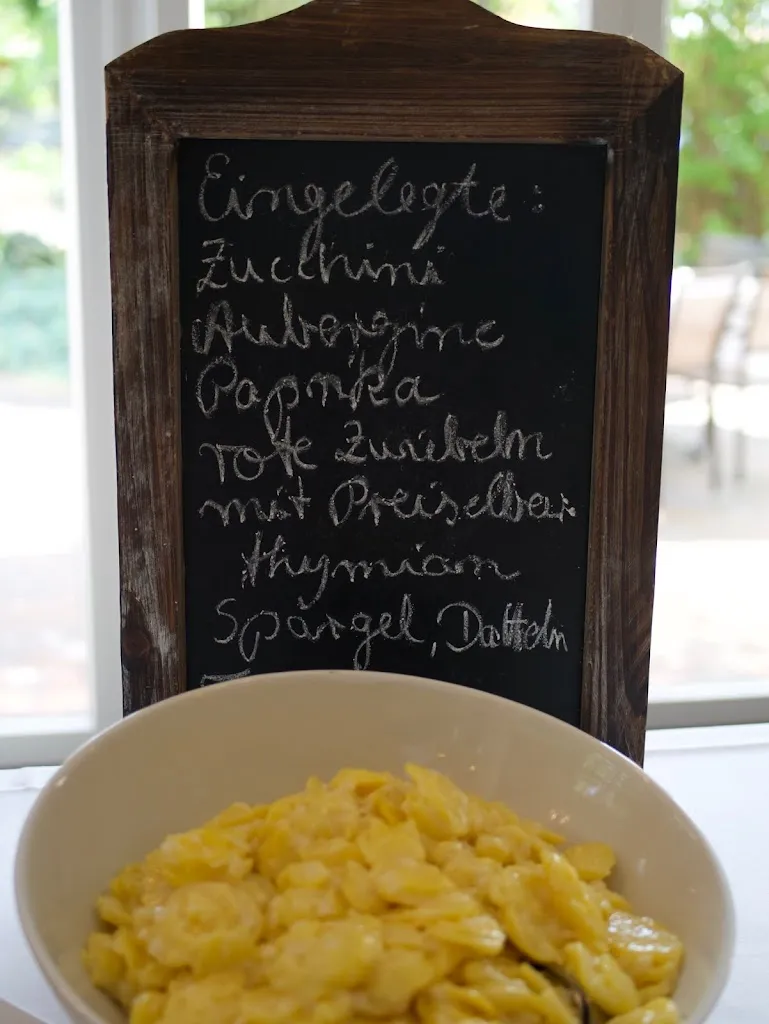 Eingelegte:
Zucchini
Aubergine
Paprika
rote Zwiebeln
mit Preiselbee
thymian
Spargel, Datteln